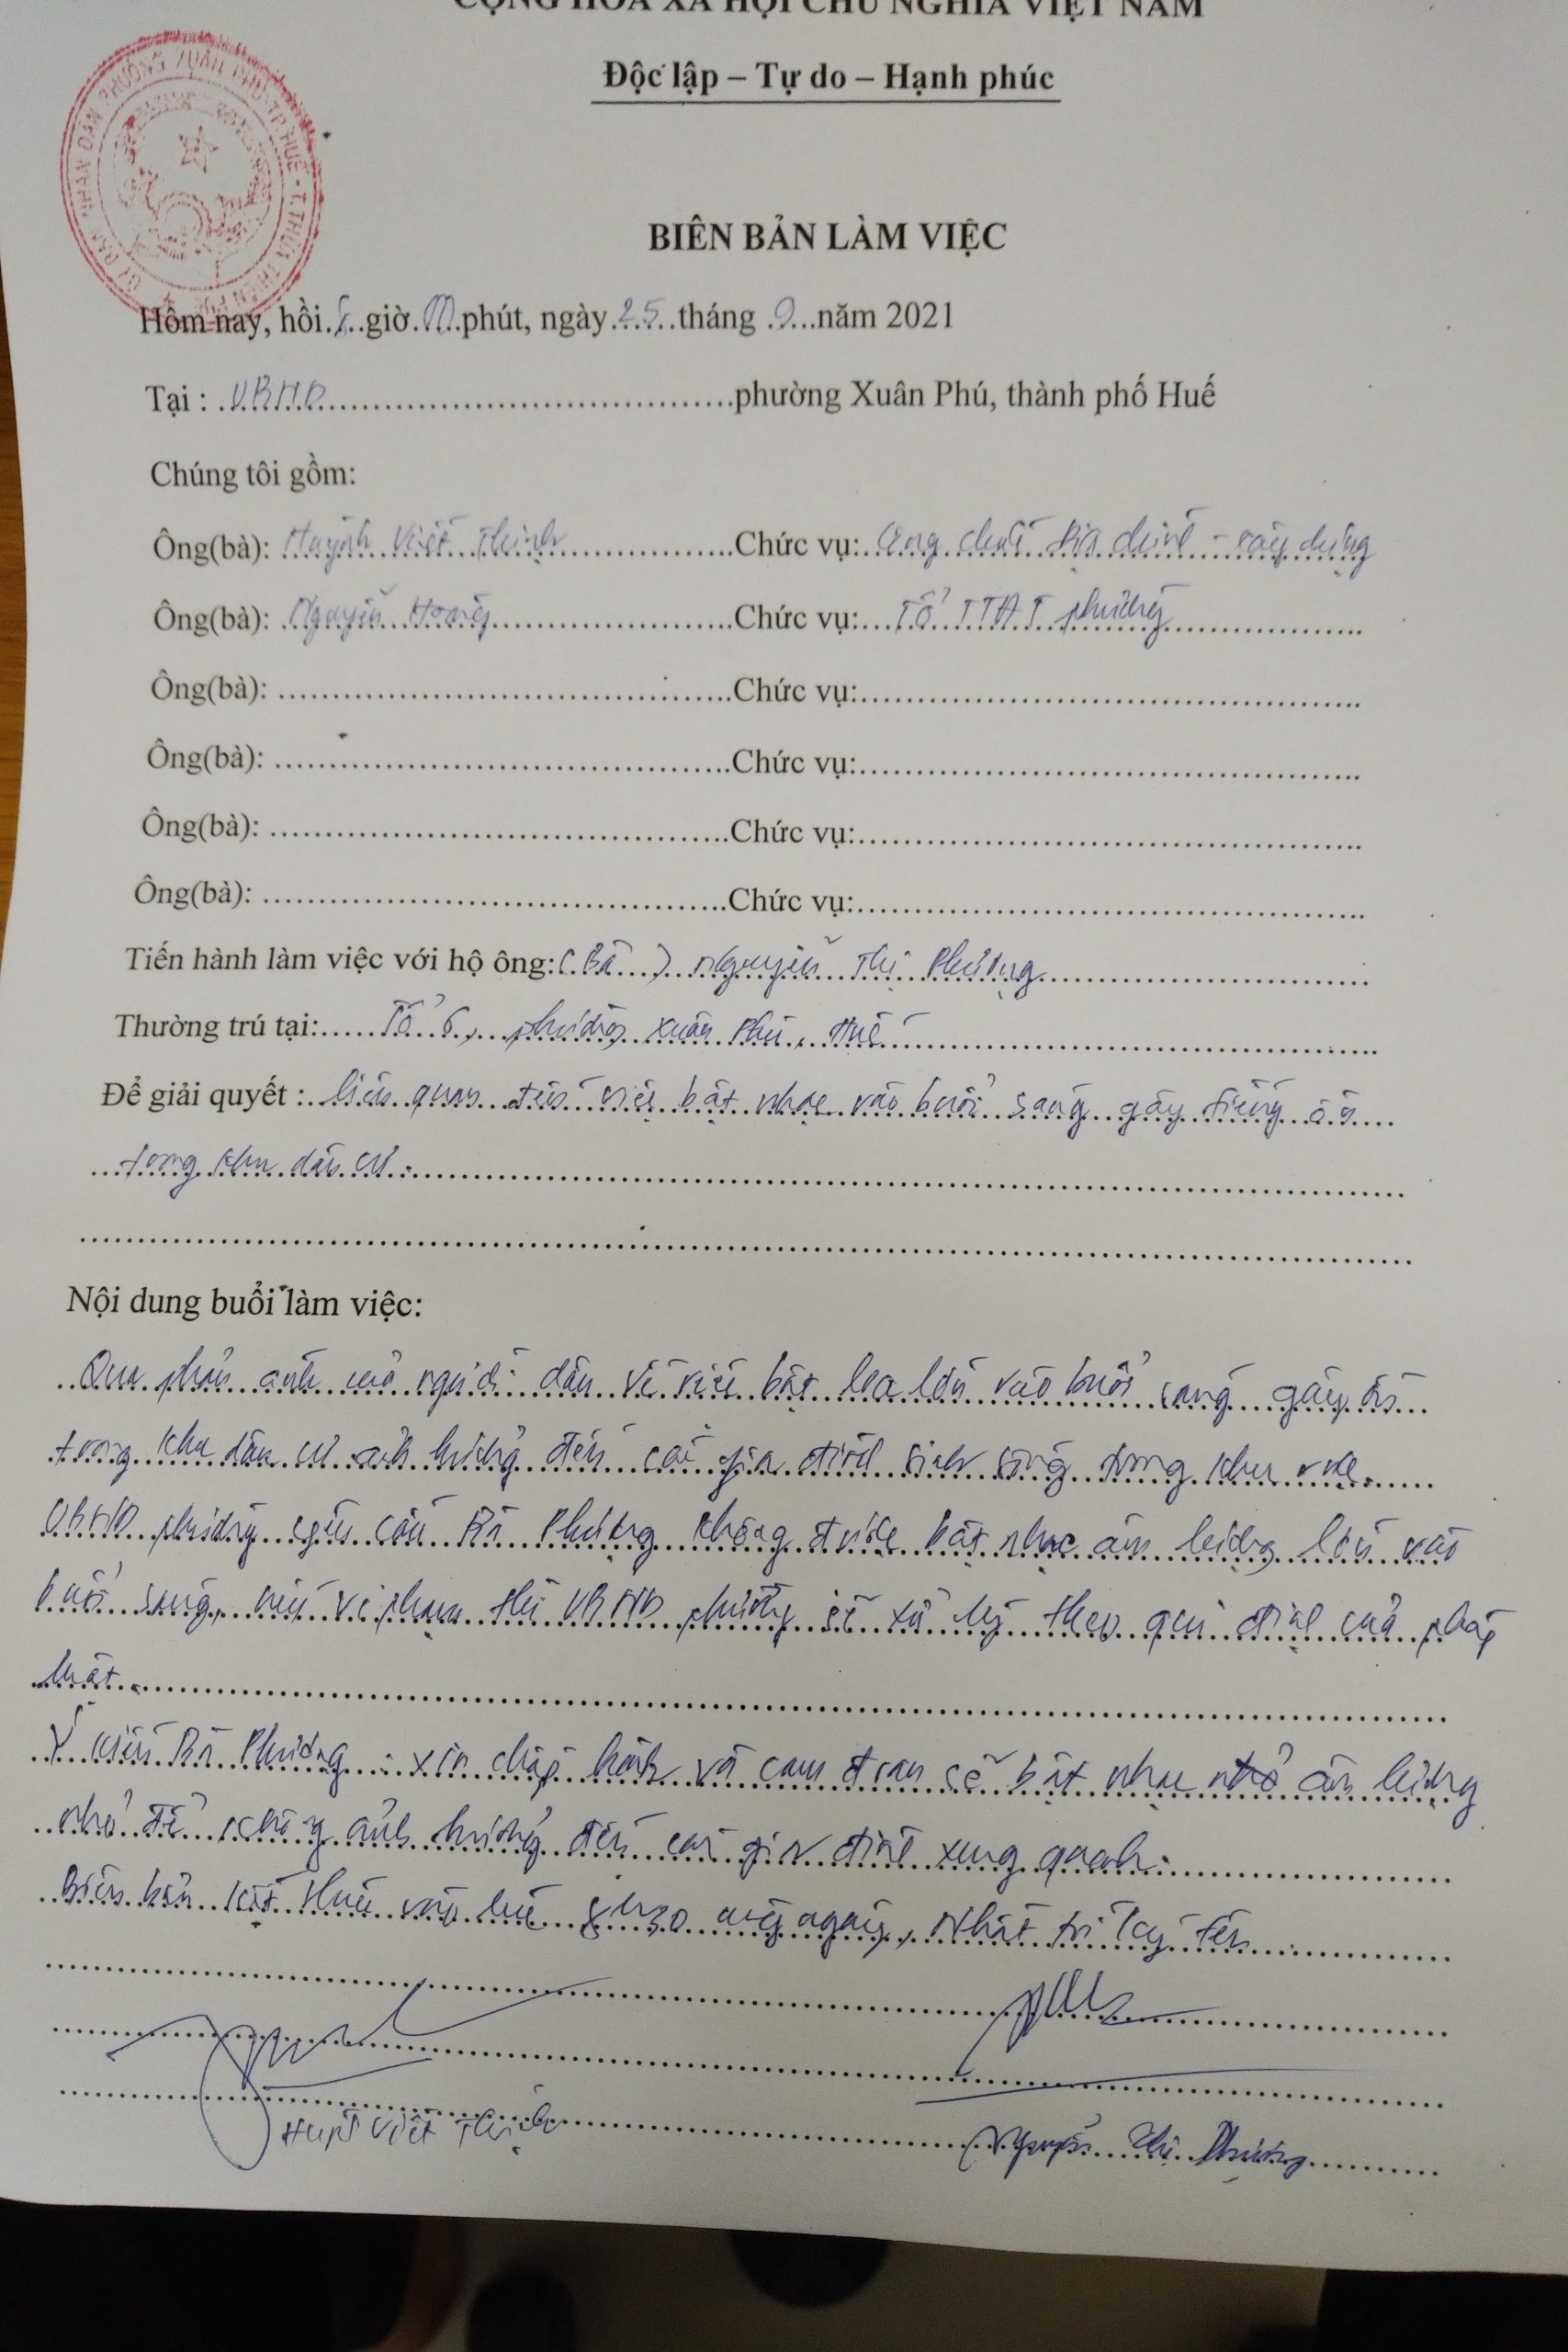 CỘNG HÒA XÃ HỘI CHỦ NGHĨA VIỆT NAM
Độc lập – Tự do – Hạnh phúc
ỦY BAN NHÂN DÂN PHƯỜNG XUÂN PHÚ TP. HUẾ - T. THỪA THIÊN HUẾ
BIÊN BẢN LÀM VIỆC
Hôm nay, hồi 8 giờ 00 phút, ngày 25 tháng 9 năm 2021
Tại : UBND phường Xuân Phú, thành phố Huế
Chúng tôi gồm:
Ông(bà): Huỳnh Viết Thịnh Chức vụ: Công chức địa chính - xây dựng
Ông(bà): Nguyễn Hoàng Chức vụ: Tổ TTĐT phường
Ông(bà): Chức vụ:
Ông(bà): Chức vụ:
Ông(bà): Chức vụ:
Ông(bà): Chức vụ:
Tiến hành làm việc với hộ ông: (Bà) Nguyễn Thị Phượng
Thường trú tại: Tổ 6, phường Xuân Phú, Huế
Để giải quyết : liên quan đến việc bật nhạc vào buổi sáng gây tiếng ồn
trong khu dân cư.
Nội dung buổi làm việc:
Qua phản ánh của người dân về việc bật loa lớn vào buổi sáng gây ồn
trong khu dân cư ảnh hưởng đến các gia đình sinh sống trong khu vực.
UBND phường yêu cầu Bà Phượng không được bật nhạc âm lượng lớn vào
buổi sáng, nếu vi phạm thì UBND phường sẽ xử lý theo qui định của pháp
luật.
Ý kiến Bà Phượng : xin chấp hành và cam đoan sẽ bật nhạc âm lượng
nhỏ để không ảnh hưởng đến các gia đình xung quanh.
Biên bản kết thúc vào lúc 8h30 cùng ngày, Nhất trí ký tên
Huỳnh Viết Thịnh Nguyễn Thị Phượng